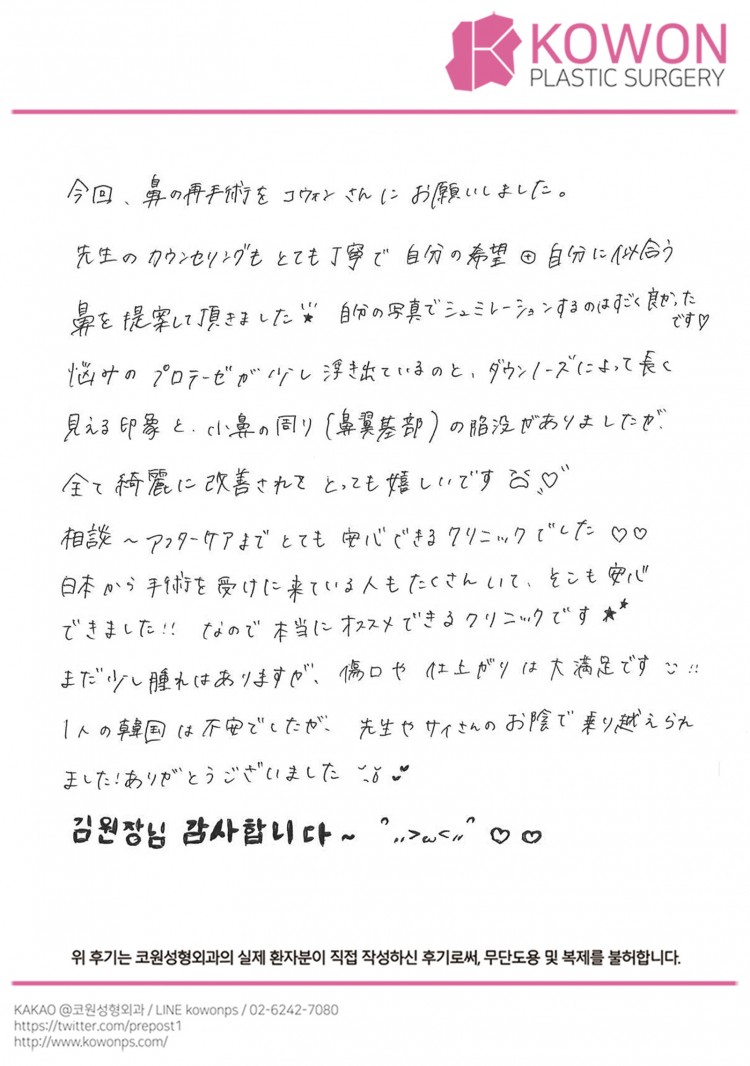 KOWON
PLASTIC SURGERY
今回、鼻の再手術を コウォン さんに お願いしました。
先生の カウンセリングも とても 丁寧で 自分の希望 ⊕ 自分に似合う
鼻を 提案して頂きました★ 自分の写真で シュミレーションするのはすごく 良かった
です♡
悩みの プロテーゼが 少し 浮き出ているのと、ダウンノーズによって長く
見える印象と、小鼻の周り (鼻翼基部) の陥没がありましたが、
全て 綺麗に 改善されて とっても 嬉しいです ♡
相談 〜 アフターケアまで とても 安心できる クリニックでした ♡♡
日本から 手術を 受けに来ている人も たくさん いて、そこも 安心
できました!! なので 本当に オススメできる クリニックです ★★
まだ 少し 腫れはありますが、 傷口や 仕上がりは 大満足です !!
1人の韓国は 不安でしたが、 先生や サイさんの お陰で 乗り越えられ
ました!ありがとうございました
김원장님 감사합니다~ ^,,>ω<,,^ ♡♡
위 후기는 코원성형외과의 실제 환자분이 직접 작성하신 후기로써, 무단도용 및 복제를 불허합니다.
KAKAO @코원성형외과 / LINE kowonps / 02-6242-7080
https://twitter.com/prepost1
http://www.kowonps.com/